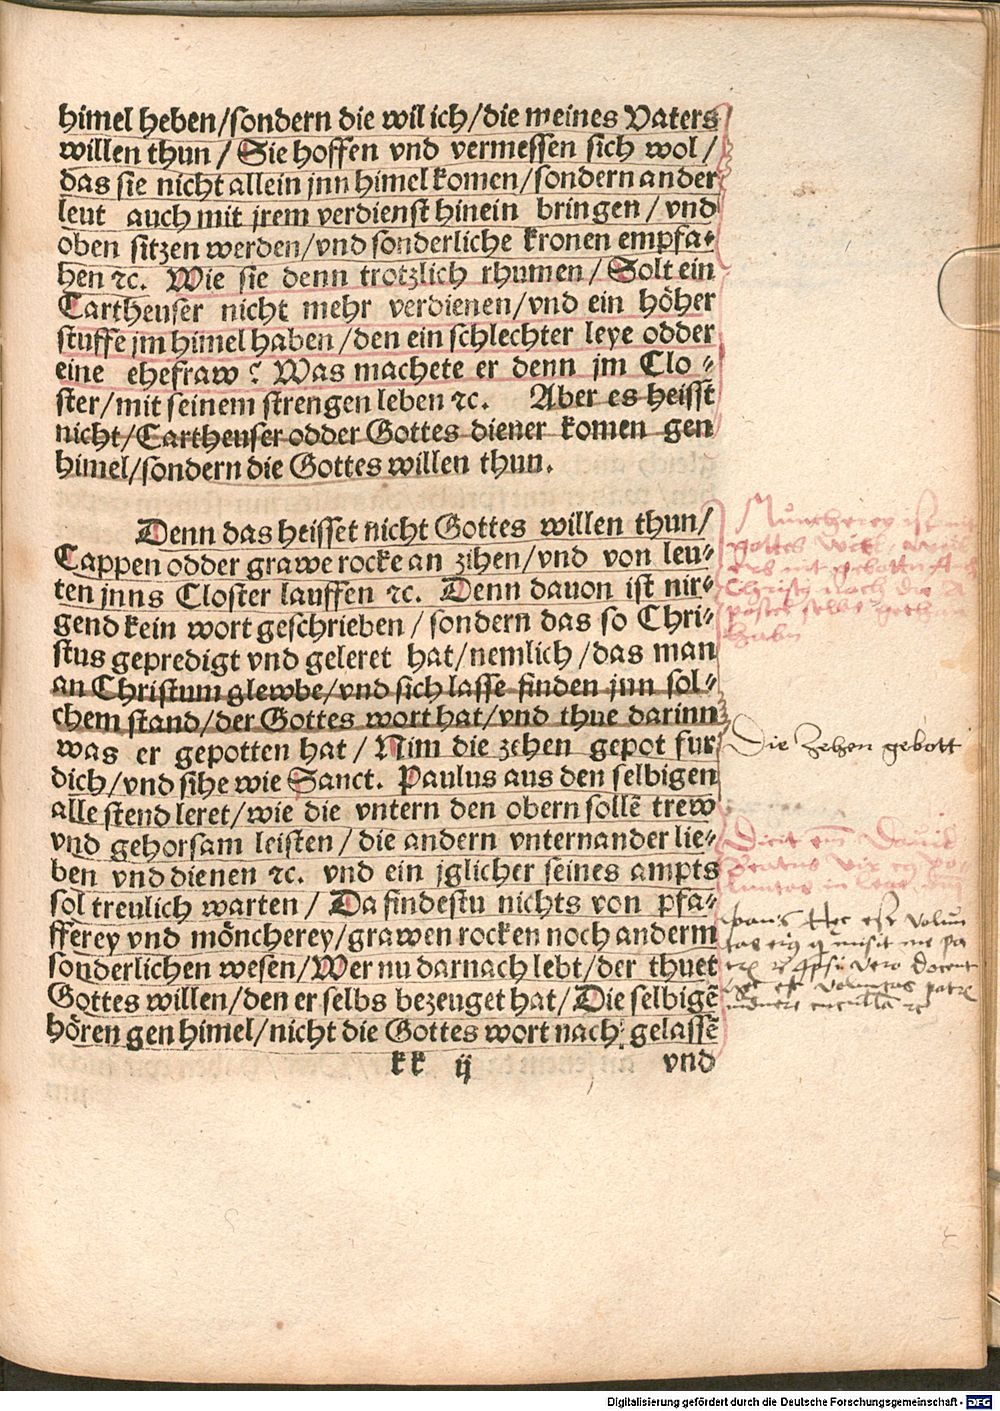 himel heben/sondern die wil ich/die meines Vaters
willen thun / Sie hoffen vnd vermessen sich wol /
das sie nicht allein jnn himel komen/sondern ander
leut auch mit jrem verdienst hinein bringen / vnd
oben sitzen werden/vnd sonderliche kronen empfa⸗
hen ꝛc. Wie sie denn trotzlich rhumen / Solt ein
Cartheuser nicht mehr verdienen/vnd ein höher
stuffe jm himel haben /den ein schlechter leye odder
eine ehefraw? Was machete er denn jm Clo ⸗
ster/mit seinem strengen leben ꝛc. Aber es heisst
nicht/Cartheuser odder Gottes diener komen gen
himel/sondern die Gottes willen thun.
Denn das heisset nicht Gottes willen thun/
Cappen odder grawe rocke an zihen/vnd von leu⸗
ten jnns Closter lauffen ꝛc. Denn dauon ist nir⸗
gend kein wort geschrieben / sondern das so Chri⸗
stus gepredigt vnd geleret hat/nemlich /das man
an Christum glewbe/vnd sich lasse finden jnn sol⸗
chem stand/der Gottes wort hat/vnd thue darinn
was er gepotten hat / Nim die zehen gepot fur
dich/vnd sihe wie Sanct. Paulus aus den selbigen
alle stend leret/wie die vntern den obern sollē trew
vnd gehorsam leisten / die andern vnternander lie⸗
ben vnd dienen ꝛc. vnd ein jglicher seines ampts
sol treulich warten / Da findestu nichts von pfa⸗
fferey vnd möncherey/grawen rocken noch anderm
sonderlichen wesen/Wer nu darnach lebt/der thuet
Gottes willen/den er selbs bezeuget hat/Die selbigē
hören gen himel/nicht die Gottes wort nach gelassē
kk ij vnd
Müncherey ist
gottes
nit gebotten
Christus noch die A
postel selbs gethan
habn
Die Zehen gebott
Dicit David
Beatus vir
in lege
Hec est volun
tas misit me pa
vero docent
est voluntas
Digitalisierung gefördert durch die Deutsche Forschungsgemeinschaft - DFG